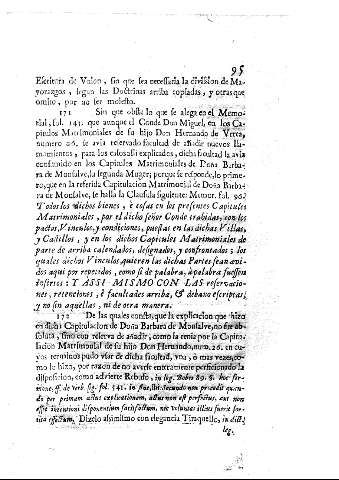 95
Escritura de Union, sin que sea necessaria la division de Ma-
yorazgos, segun las Doctrinas arriba copiadas, y otras que
omito, por no ser molesto.
171 Sin que obste lo que se alega en el Memo-
rial, fol. 143. que aunque el Conde Don Miguel, en los Ca-
pitulos Matrimoniales de su hijo Don Hernando de Urrea,
numero 26. se avia reservado facultad de añadir nuevos lla-
mamientos, para los casos alli explicados, dicha facultad la avia
consumido en los Capitulos Matrimoniales de Doña Barba-
ra de Monsalve, su segunda Muger; porque se responde, lo prime-
ro, que en la referida Capitulacion Matrimonial de Doña Barba-
ra de Monsalve, se halla la Clausula siguiente: Memor. fol. 90.
Y todos los dichos bienes, è cosas en los presentes Capitulos
Matrimoniales, por el dicho señor Conde trahidas, con los
pactos, Vinculos, y condiciones, puestas en las dichas Villas,
y Castillos, y en los dichos Capitulos Matrimoniales de
parte de arriba calendados, designados, y confrontados; los
quales dichos Vinculos, quieren las dichas Partes sean avi-
dos aqui por repetidos, como si de palabra, à palabra fuessen
insertos: Y ASSI MISMO CON LAS reservacio-
nes, retenciones, è facultades arriba, & debaxo escriptas,
y no sin aquellas, ni de otra manera.
172 De las quales consta, que la explicacion que hizo
en dicha Capitulacion de Doña Barbara de Monsalve, no fue ab-
soluta, sino con reserva de añadir, como la tenia por la Capitu-
lacion Matrimonial de su hijo Don Hernando, num. 26. en cu-
yos terminos pudo usar de dicha facultad, una, ò mas vezes, co-
mo le hizo, por razon de no averse enteramente perficionado la
disposicion, como advierte Rebuf. in leg. Boves 89. §. hoc ser-
mone, ff. de verb. sig. fol. 541. in fin. ibi: Secundo non procedit quan-
do per primam actus explicationem, actus non est perfectus, aut non
esset intentioni disponentium satisfactum, nec voluntas illius fuerit sor-
tita effectum. Dizelo assimismo con elegancia Tiraquello, in dict.
leg.